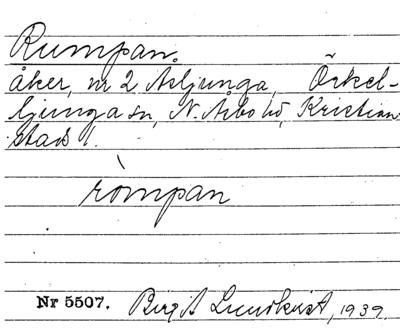 Rumpan.
åker, nr 2 Åsljunga, Örkel-
ljunga sn, N. Åsbo hd, Kristian-
stads l.
ròmpan
Nr 5507. Birgit Lundkvist, 1939.